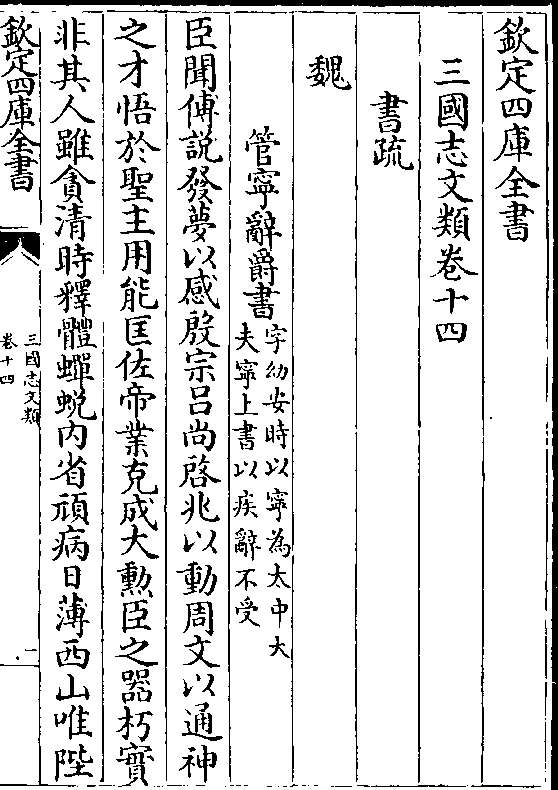 欽定四庫全書
三國志文類卷十四
書疏
魏
管寧辭爵書
字幼安時以寧為太中大
夫寧上書以疾辭不受
臣聞傅説發夢以感殷宗吕尚啓兆以動周文以通神
之才悟於聖主用能匡佐帝業克成大勲臣之器朽實
非其人雖貪清時釋體蟬蜕内省頑病日薄西山唯陛
欽定四庫全書
三國志文類
卷十四
一